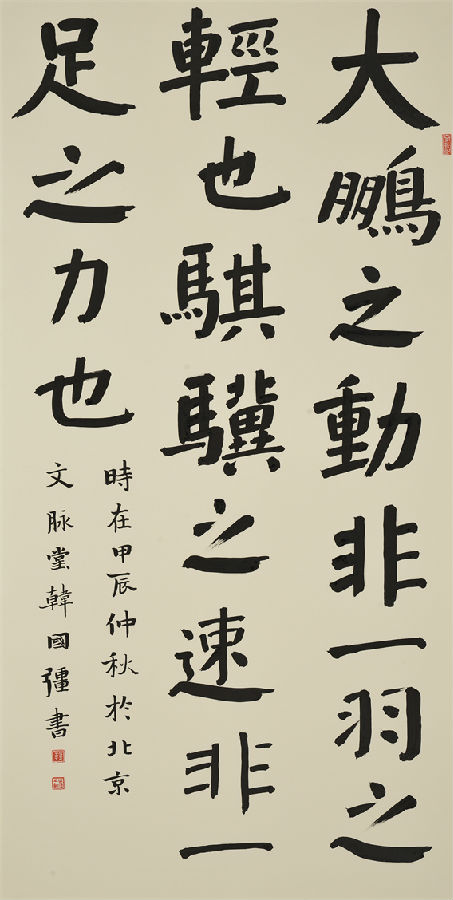 大鵬之動非一羽之
輕也騏驥之速非一
足之力也
時在甲辰仲秋於北京
文脉堂韓國彊書